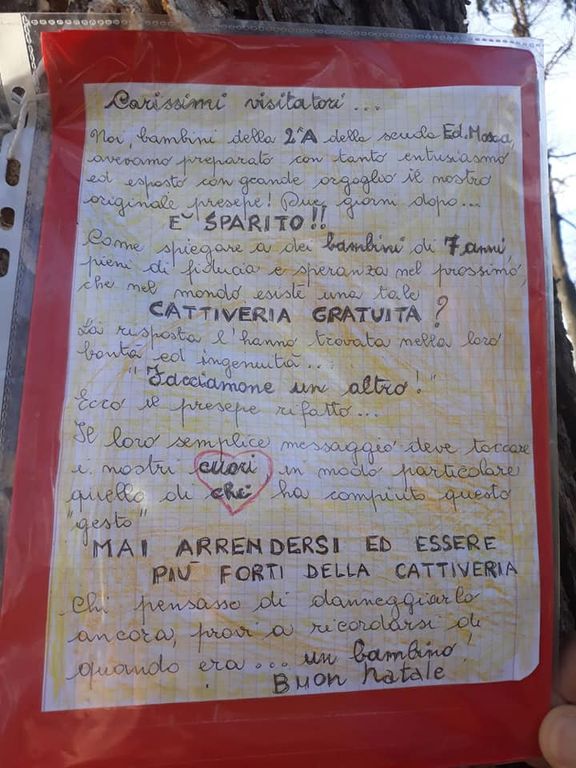 Carissimi visitatori...
Noi, bambini della 2ªA della scuola Ed. Mosca,
avevamo preparato con tanto entusiasmo
ed esposto con grande orgoglio il nostro
originale presepe! Due giorni dopo...
E' SPARITO!!
Come spiegare a dei bambini di 7 anni,
pieni di fiducia e speranza nel prossimo,
che nel mondo esiste una tale
CATTIVERIA GRATUITA?
La risposta l'hanno trovata nella loro
bontà ed ingenuità...
"Facciamone un altro!"
Ecco il presepe rifatto...
Il loro semplice messaggio deve toccare
i nostri cuori in modo particolare
quello di chi ha compiuto questo
"gesto"
MAI ARRENDERSI ED ESSERE
PIÙ FORTI DELLA CATTIVERIA
Chi pensasse di danneggiarlo
ancora, provi a ricordarsi di
quando era... un bambino!
Buon Natale